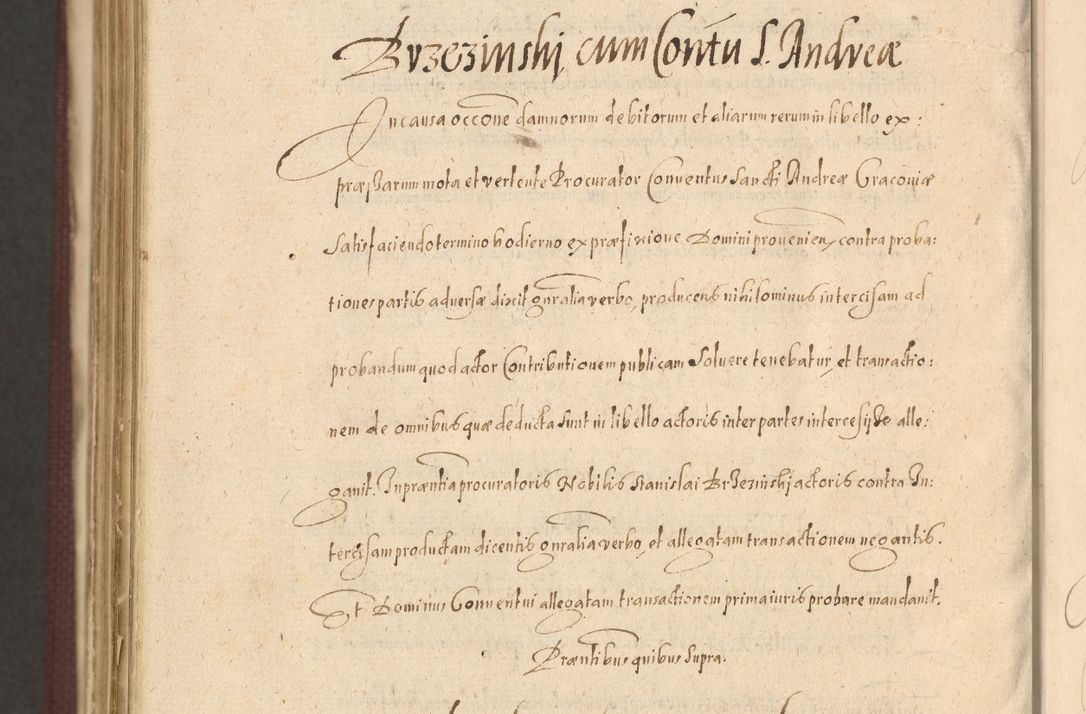 Brzezinskij cum Contu S. Andreæ
In causa occone damnorum debitorum et aliarum rerum in libello ex:
præssarum mota et vertente Procurator Conventus Sancti Andreæ Cracoviæ
Satisfaciendo termino hodierno ex præfixione Domini provenien, contra proba:
tiones partis adversæ dixit gnralia verbo, producens nihilominus intercisam ad
probandum quod actor Contributionem publicam Solvere tenebatur, et transactio:
nem de omnibus quæ deducta sunt in libello actoris inter partes intercessisse alle:
gavit. In præntia procuratoris Nobilis Stanislai Brzezinskj actoris contra In:
tercisam productam dicentis gnralia verbo, et allegatam transactionem negantis.
Et Dominus Conventui allegatam transactionem prima iuris probare mandavit.
Præntibus quibus Supra.